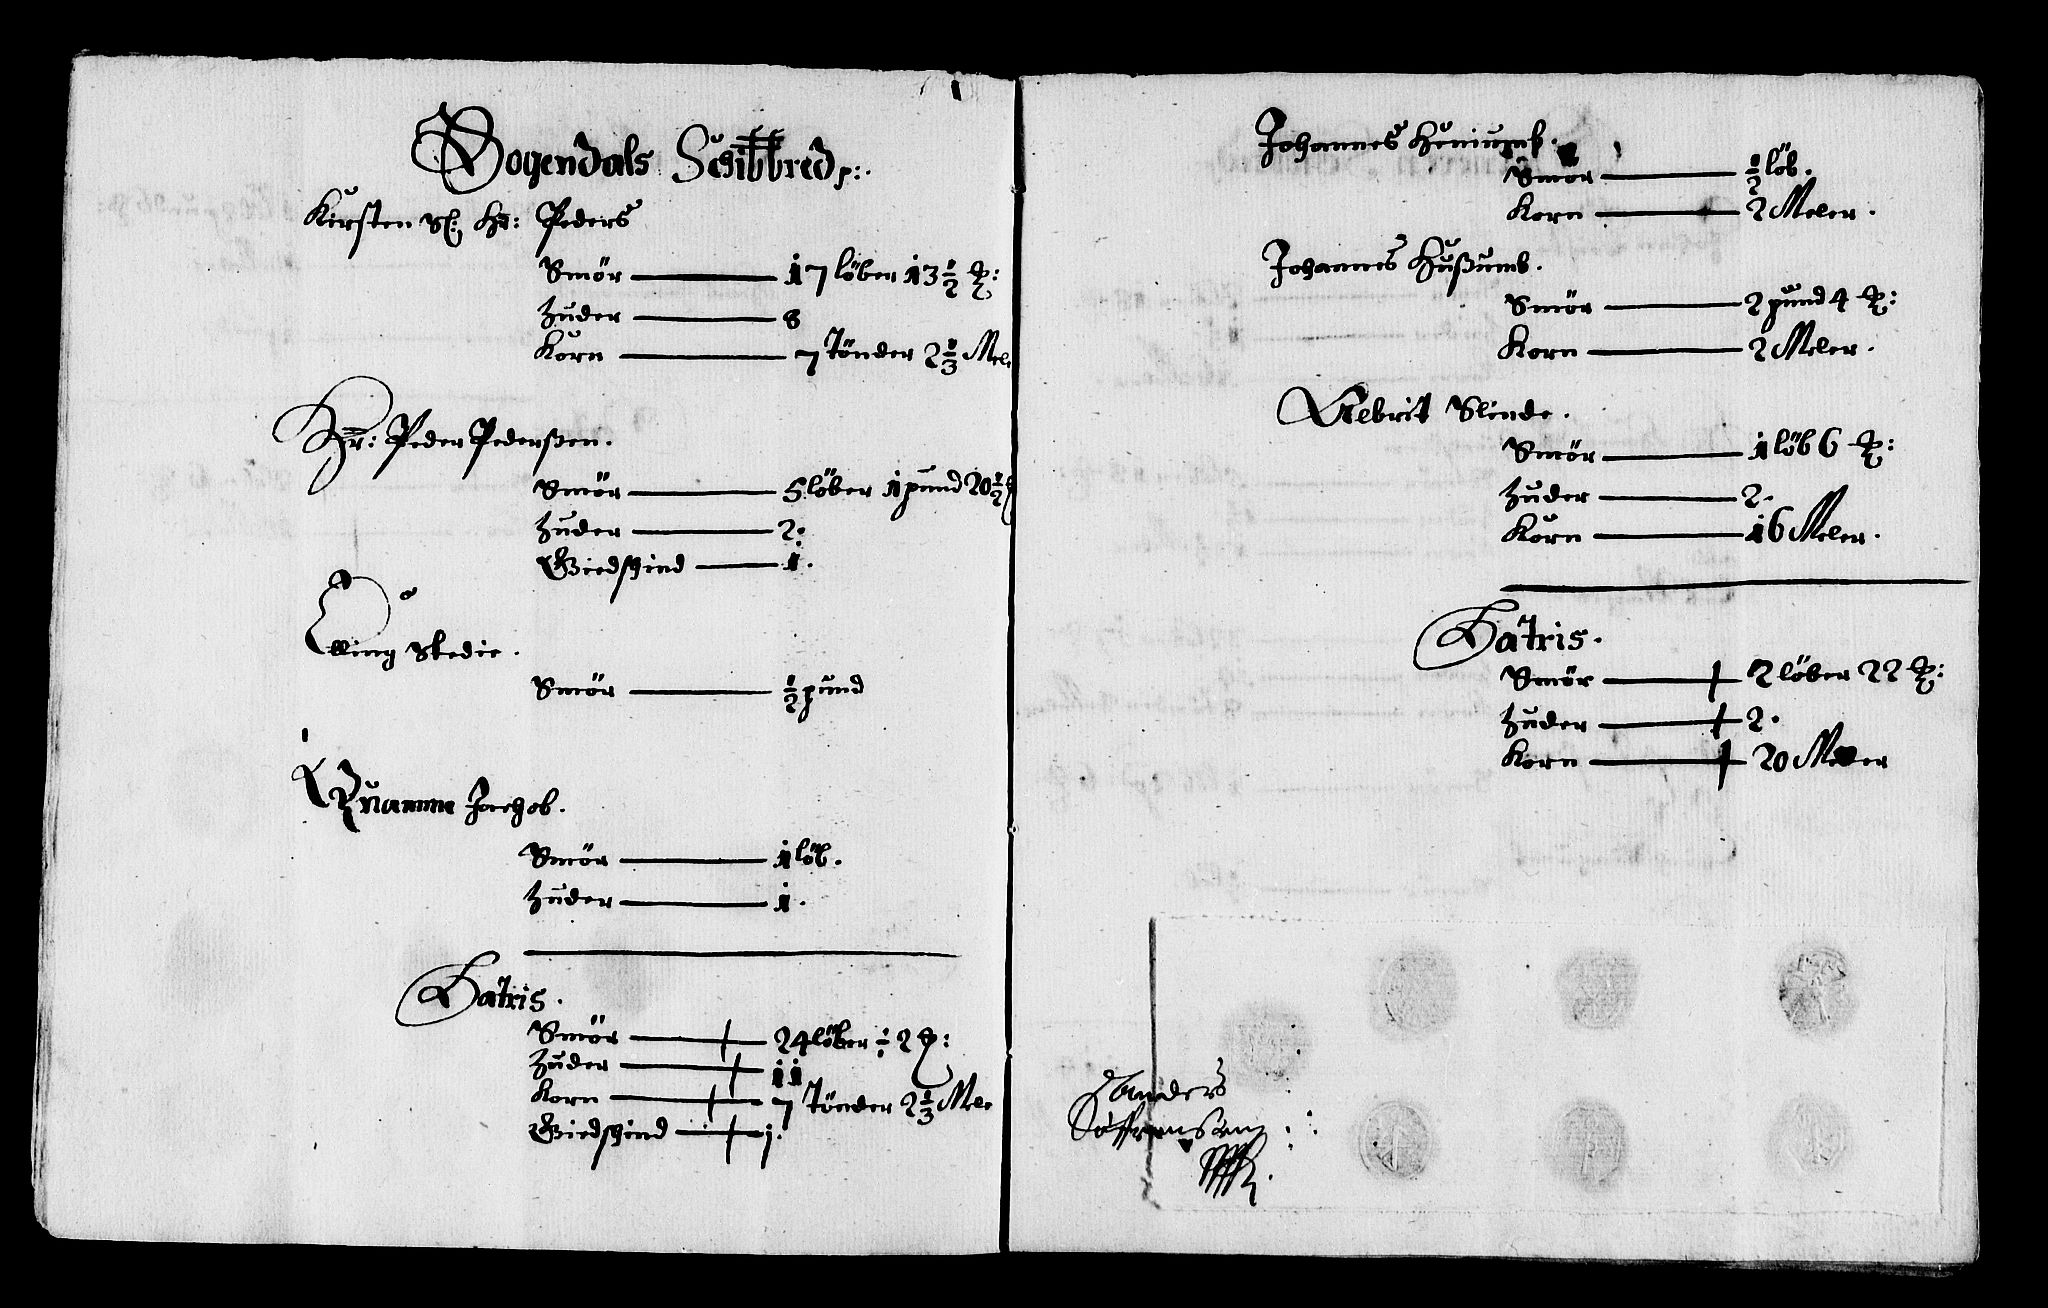 Sogendals Schibbred p:.
Kirsten Sl: Hr: Peders
Smör 17 löber 13½ ℔:
Huder 8
Korn 7 Tönder 2⅔ Mele
Hr: Peder Pederßen.
Smör 5 löber 1 pund 20½
Huder 2.
Giedschind 1.
Elling Stedie.
Smör ½ pund
Quamm Jachob.
Smör 1 löb.
Huder 1.
Latris.
Smör 24 löber ÷ 2 ℔:
Huder 11
Korn 7 Tönder 2⅔ Mele
Giedschind 1.
Johannes
Smör ½ löb.
Korn 2 Meler.
Johannes Hußumb.
Smör 2 pund 4 ℔:
Korn 2 Meler.
Elebrit Slinde.
Smör 1 löb 6 ℔:
Huder 2.
Korn 16 Meler.
Latris.
Smör 2 löber 22 ℔:
Huder 2.
Korn 20 Meler
Sanders
Söffrensenn